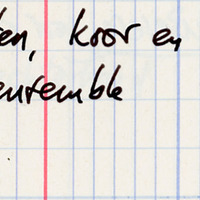 ten, koor en
ensemble